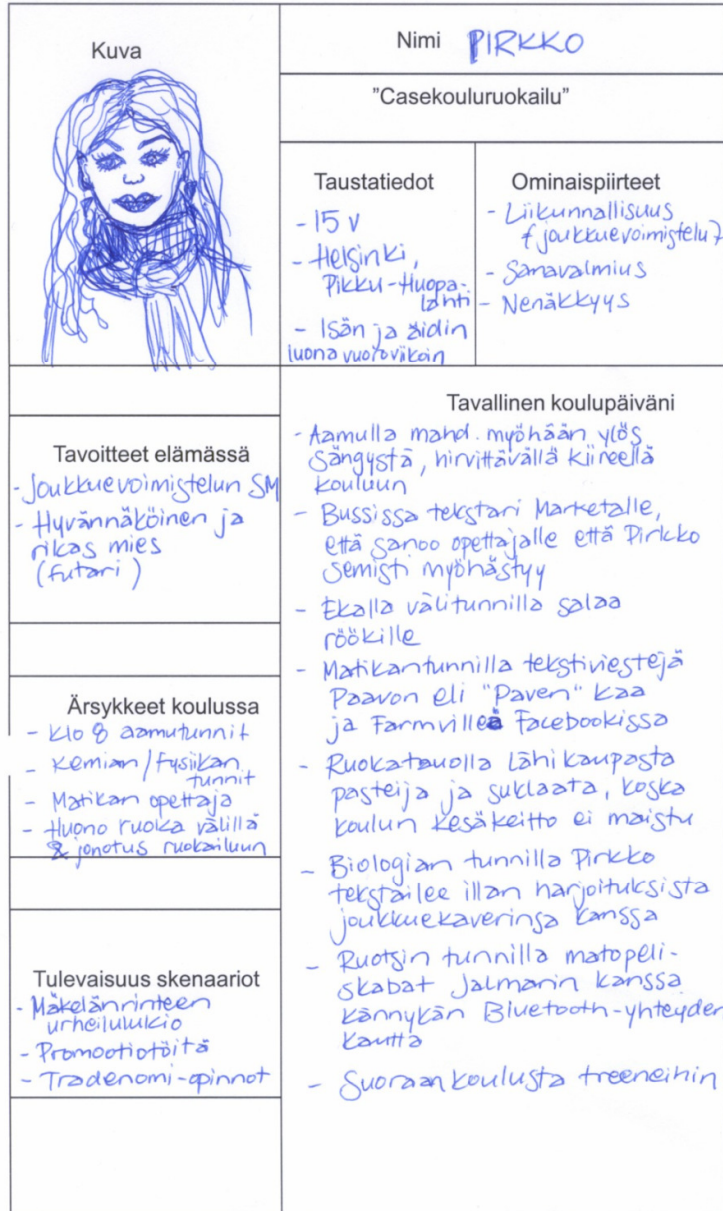 Kuva
Nimi PIRKKO
"Casekouluruokailu"
Taustatiedot
- 15 v
- Helsinki,
Pikku-Huopa-
lahti
- Isän ja äidin
luona vuoroviikoin
Ominaispiirteet
- Liikunnallisuus
(joukkuevoimistelu)
- Sanavalmius
- Nenäkkyys
Tavoitteet elämässä
- Joukkuevoimistelun SM
- Hyvännäköinen ja
rikas mies
(futari)
Ärsykkeet koulussa
- klo 8 aamutunnit
- Kemian/fysiikan
tunnit
- Matikan opettaja
- Huono ruoka välillä
& jonotus ruokailuun
Tulevaisuus skenaariot
- Mäkelänrinteen
urheilulukio
- Promootiotöitä
- Tradenomi-opinnot
Tavallinen koulupäiväni
- Aamulla mahd. myöhään ylös
sängystä, hirvittävällä kiireellä
kouluun
- Bussissa tekstari Marketalle,
että sanoo opettajalle että Pirkko
semisti myöhästyy
- Ekalla välitunnilla salaa
röökille
- Matikantunnilla tekstiviestejä
Paavon eli "Paven" kaa
ja Farmvilleä Facebookissa
- Ruokatauolla lähikaupasta
pasteija ja suklaata, koska
koulun kesäkeitto ei maistu
- Biologian tunnilla Pirkko
tekstailee illan harjoituksista
joukkuekaverinsa kanssa
- Ruotsin tunnilla matopeli-
skabat Jalmarin kanssa
kännykän Bluetooth-yhteyden
kautta
- Suoraan koulusta treeneihin